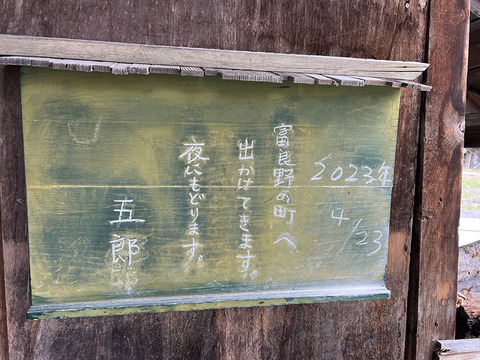 2023年
4/23
富良野の町へ
出かけてきます。
夜にもどります。
五郎